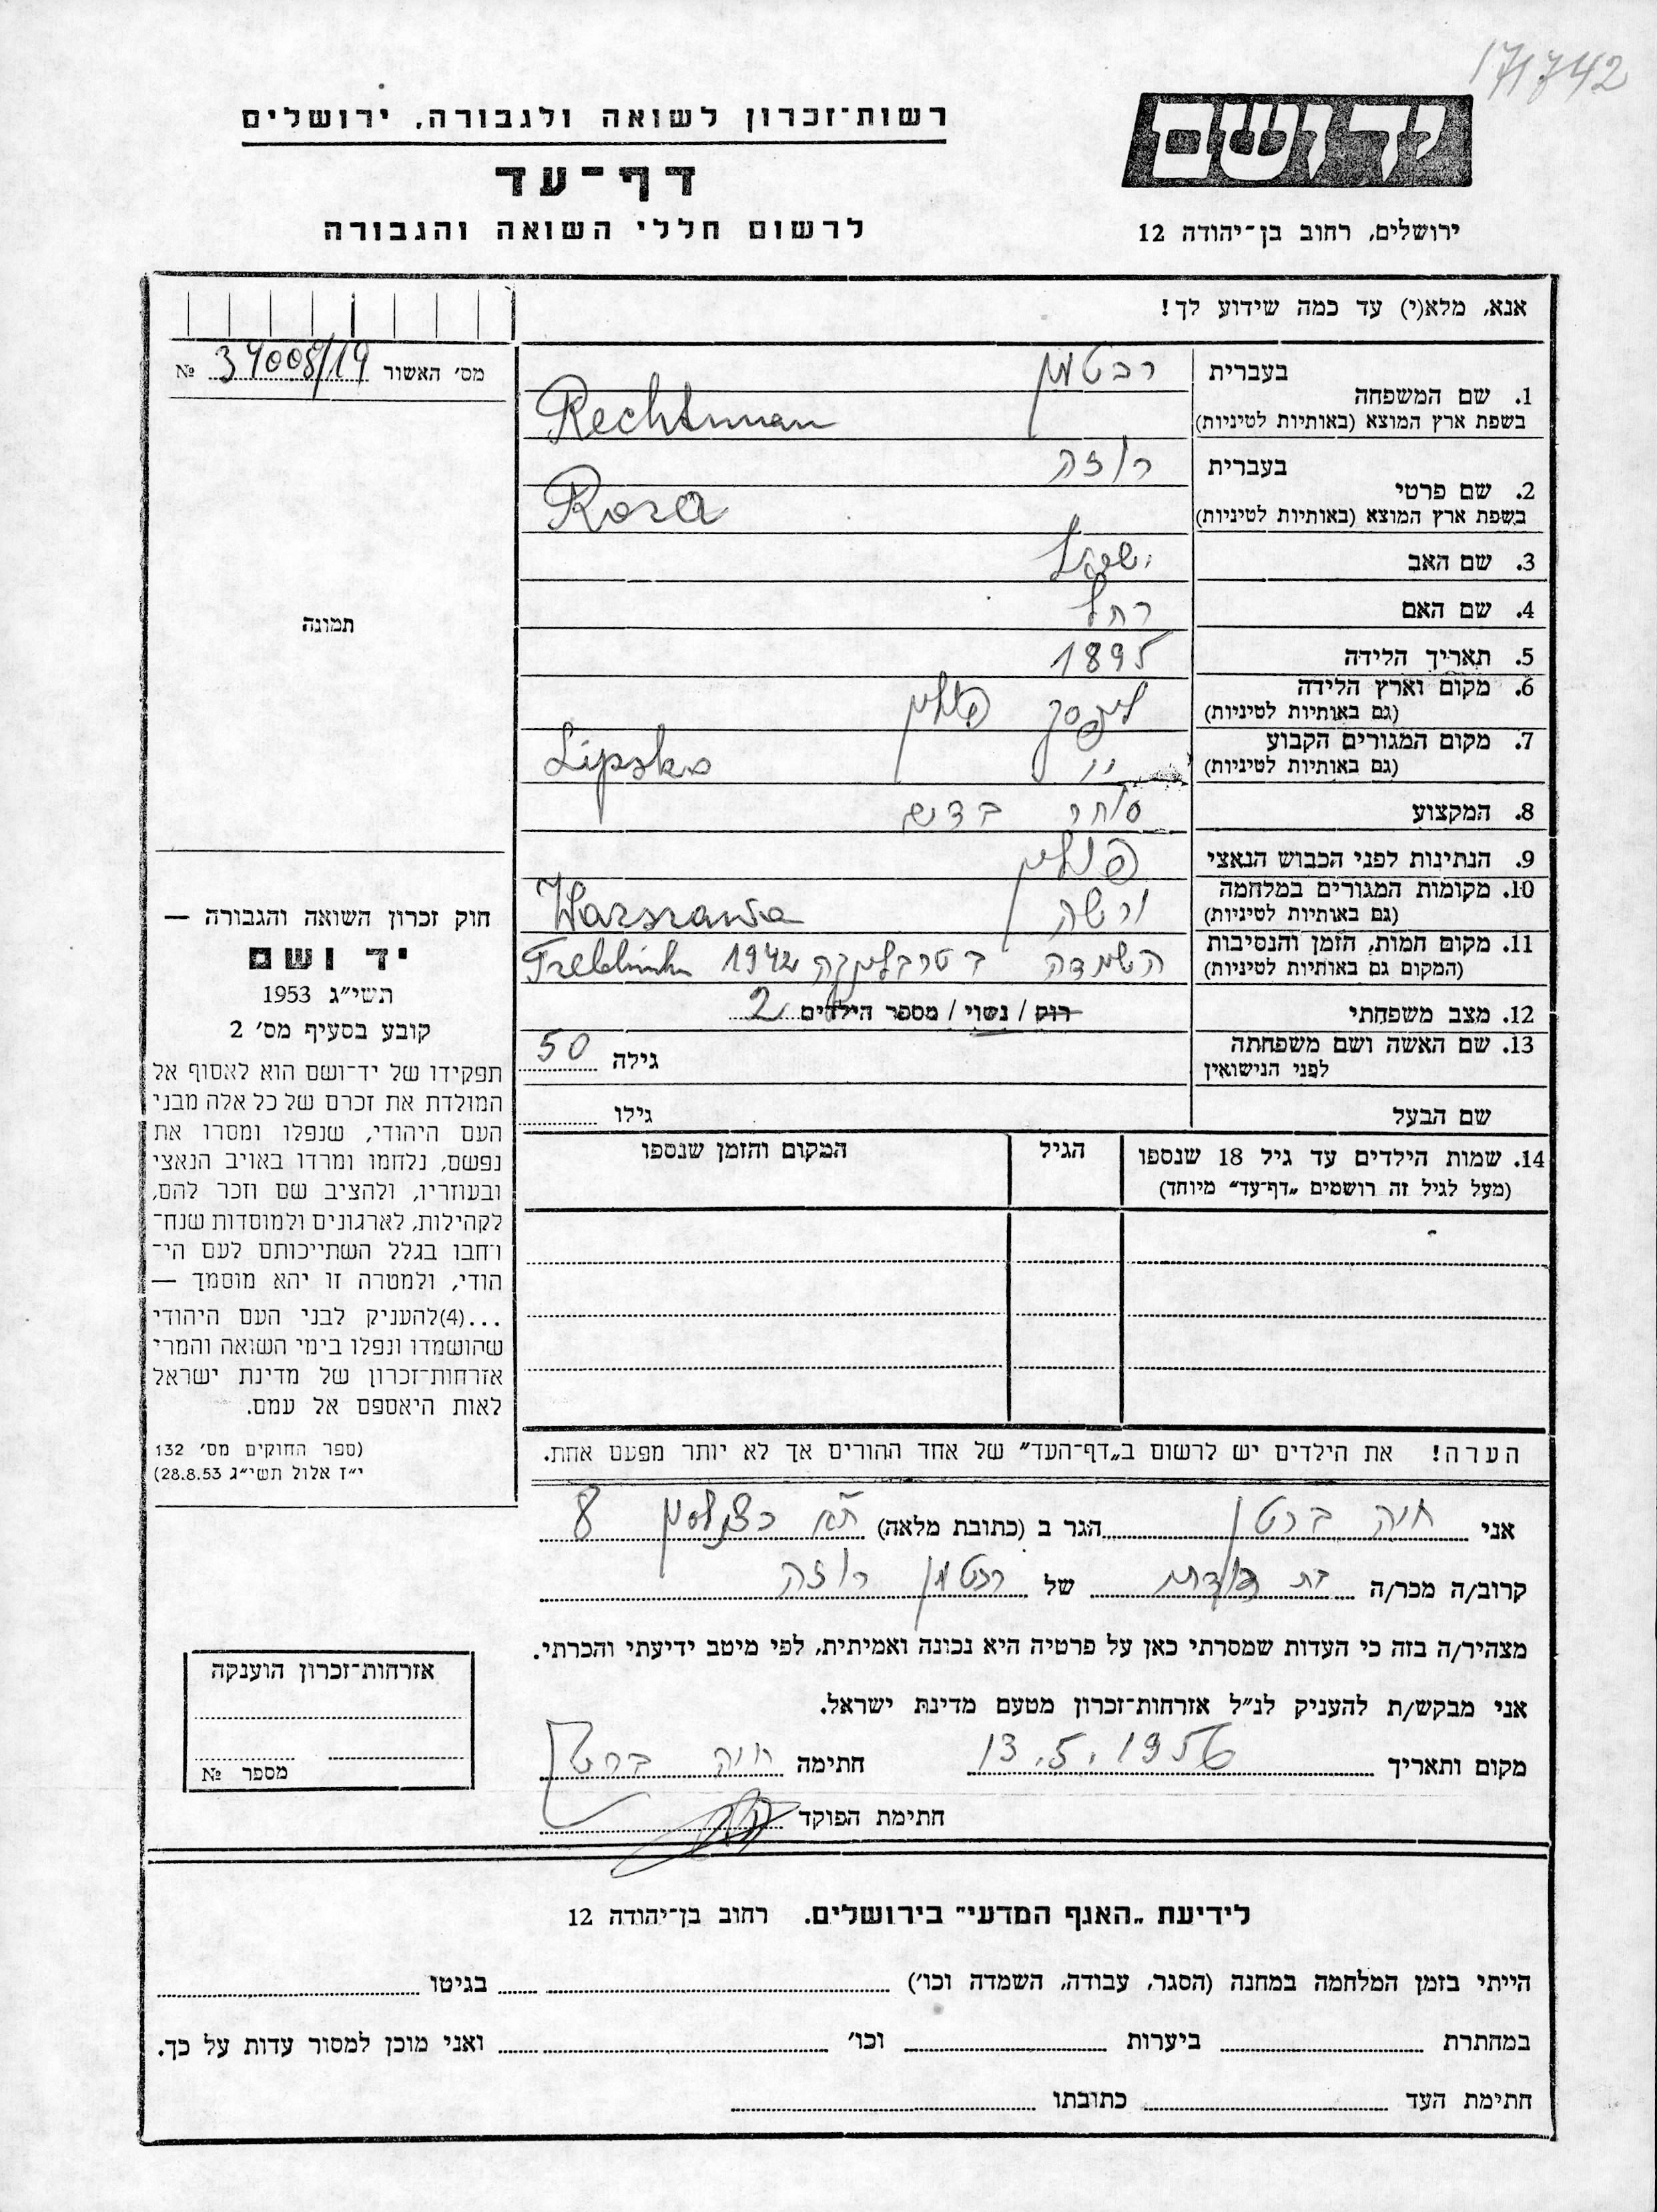 171742
יד ושם
ירושלים, רחוב בן־יהודה 12
רשות־זכרון לשואה ולגבורה, ירושלים
דף־עד
לרשום חללי השואה והגבורה
אנא, מלא(י) עד כמה שידוע לך!
מס' האשור 34008/19 №
תמונה
1. שם המשפחה בעברית רכטמן
בשפת ארץ המוצא (באותיות לטיניות) Rechtman
2. שם פרטי בעברית רוזה
בשפת ארץ המוצא (באותיות לטיניות) Roza
3. שם האב ישראל
4. שם האם רחל
5. תאריך הלידה 1895
6. מקום וארץ הלידה
(גם באותיות לטיניות) ליפסק פולין
7. מקום המגורים הקבוע
(גם באותיות לטיניות) " Lipsko
8. המקצוע סוחר
9. הנתינות לפני הכבוש הנאצי פולין
10. מקומות המגורים במלחמה
(גם באותיות לטיניות) ורשה Warszawa
11. מקום המות, הזמן והנסיבות
(המקום גם באותיות לטיניות) השמדה בטרבלינקה 1942 Treblinka
12. מצב משפחתי רוק / נשוי / מספר הילדים 2
13. שם האשה ושם משפחתה
לפני הנישואין גילה 50
שם הבעל גילו
14. שמות הילדים עד גיל 18 שנספו
(מעל לגיל זה רושמים "דף־עד" מיוחד)
הגיל
המקום והזמן שנספו
הערה! את הילדים יש לרשום ב"דף־העד" של אחד ההורים אך לא יותר מפעם אחת.
חוק זכרון השואה והגבורה —
יד ושם
תשי"ג 1953
קובע בסעיף מס' 2
תפקידו של יד־ושם הוא לאסוף אל
המולדת את זכרם של כל אלה מבני
העם היהודי, שנפלו ומסרו את
נפשם, נלחמו ומרדו באויב הנאצי
ובעוזריו, ולהציב שם וזכר להם,
לקהילות, לארגונים ולמוסדות שנח־
רבו בגלל השתייכותם לעם הי־
הודי, ולמטרה זו יהא מוסמך —
...(4)להעניק לבני העם היהודי
שהושמדו ונפלו בימי השואה והמרי
אזרחות־זכרון של מדינת ישראל
לאות היאספם אל עמם.
(ספר החוקים מס' 132
י"ז אלול תשי"ג 28.8.53)
אני חוה ברטן הגר ב (כתובת מלאה) ת"א 8
קרוב/ה מכר/ה בת דודה של רכטמן רוזה
מצהיר/ה בזה כי העדות שמסרתי כאן על פרטיה היא נכונה ואמיתית, לפי מיטב ידיעתי והכרתי.
אני מבקש/ת להעניק לנ"ל אזרחות־זכרון מטעם מדינת ישראל.
מקום ותאריך 13.5.1956 חתימה חוה ברטן
חתימת הפוקד
אזרחות־זכרון הוענקה
מספר №
לידיעת "האגף המדעי" בירושלים. רחוב בן־יהודה 12
הייתי בזמן המלחמה במחנה (הסגר, עבודה, השמדה וכו') בגיטו
במחתרת ביערות וכו' ואני מוכן למסור עדות על כך.
חתימת העד כתובתו